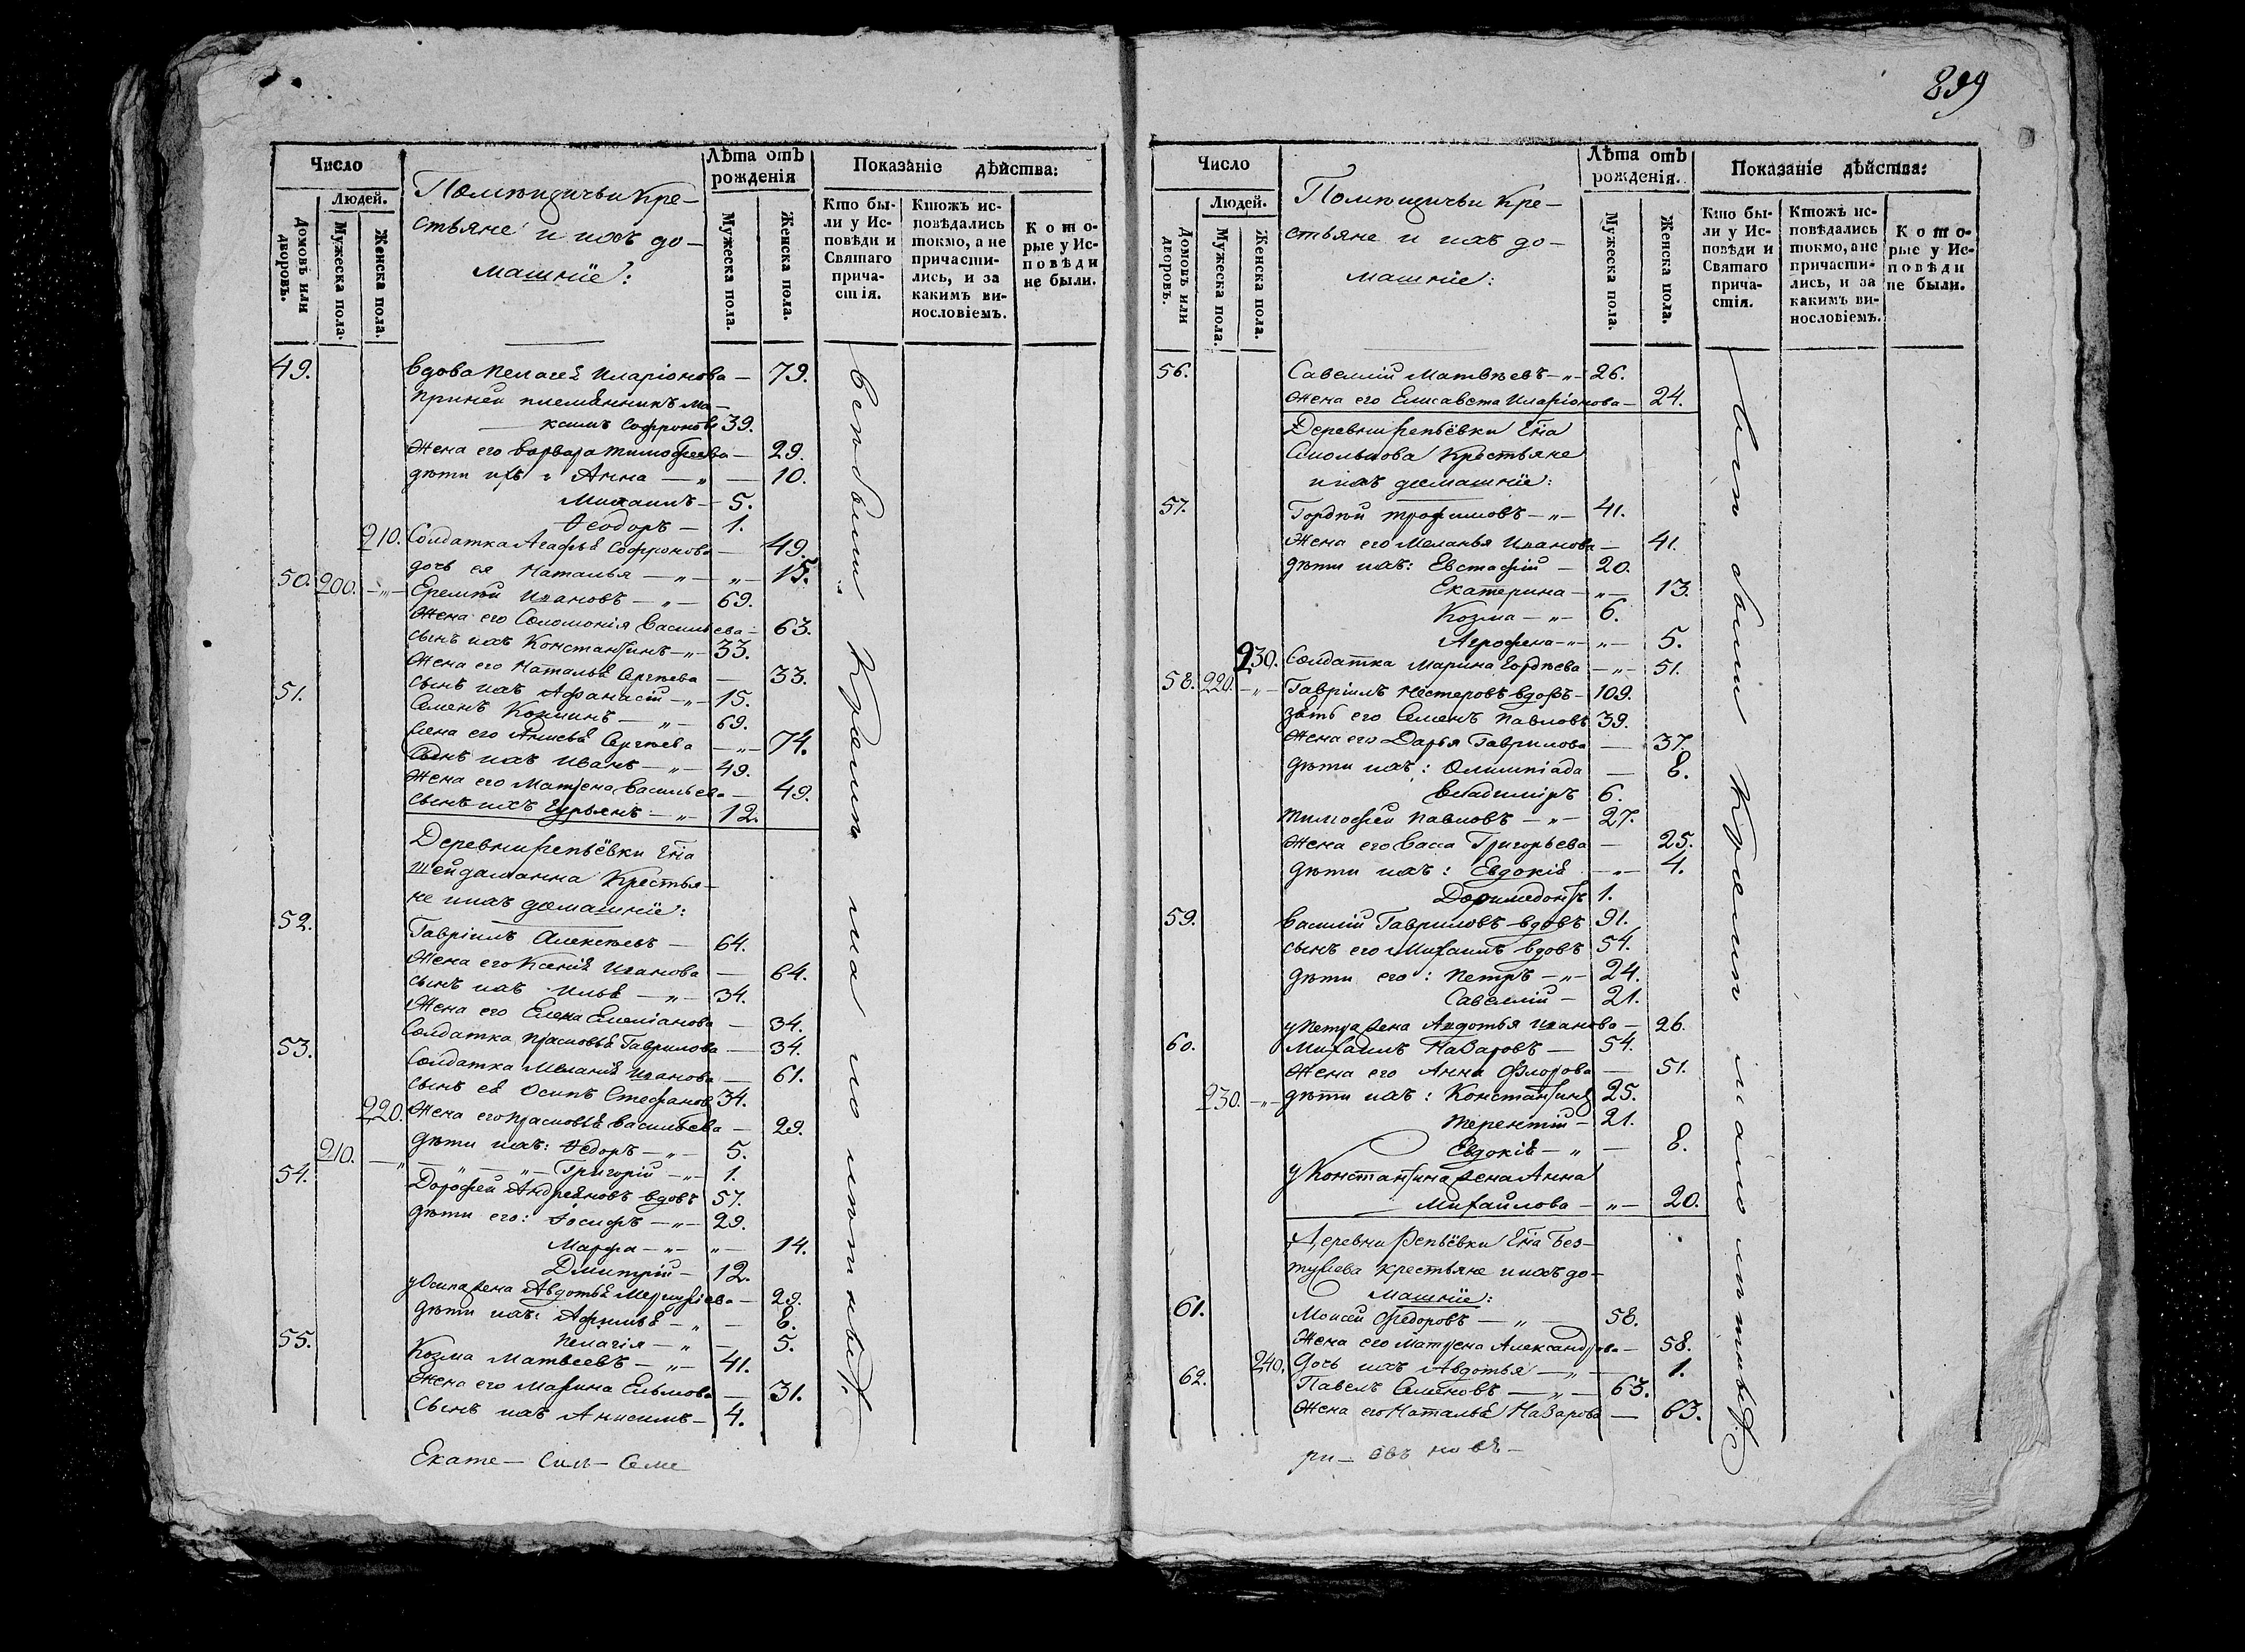 899
Число
Людей.
Домовъ или дворовъ.
Мужеска пола.
Женска пола.
Помѣщичьи Кре-
стьяне и ихъ до-
машнiе:
Лѣта отъ рожденiя
Мужеска пола.
Женска пола.
Показанiе дѣйства:
Кто бы-
ли у Ис-
повѣди и
Святаго
прича-
стiя.
Ктожъ ис-
повѣдались
токмо, а не
причасти-
лись, и за
какимъ ви-
нословiемъ.
Кото-
рые у Ис-
повѣди
не были.
49. Вдова Пелагея Иларiонова — 79.
племянникъ Ма-
ксимъ Софроновъ 39.
Жена его Варвара Тимофеева — 29.
дѣти ихъ: Анна — „ — 10.
Михаилъ — 5.
Ѳеодоръ — 1.
210. Солдатка Агафья Софронова — 49.
дочь ея Наталья — „ — „ — 15.
50. 200. — „ — Еремѣй Ивановъ — „ — 69.
Жена его Соломонiя Васильева — 63.
сынъ ихъ Константинъ — „ — 33.
Жена его Наталья Сергѣева — 33.
сынъ ихъ Афанасiй — „ — 15.
51. Семенъ Козминъ — „ — 69.
Жена его Анисья Сергѣева — „ — 74.
Сынъ ихъ Иванъ — „ — 49.
Жена его Матрена Васильева — 49.
сынъ ихъ Гурьянъ — „ — 12.
Деревни Репьёвки Гна
Шейдеманна Крестья-
не и ихъ домашнiе:
52. Гаврiилъ Алексѣевъ — 64.
Жена его Ксенiя Иванова — 64.
сынъ ихъ Илья — „ — 34.
Жена его Елена Емелiанова — 34.
Солдатка Прасковья Гаврилова — 34.
53. Солдатка Меланiя Иванова — 61.
сынъ ея Осипъ Стефановъ 34.
220. Жена его Прасковья Васильева — 29.
дѣти ихъ: Ѳедоръ — „ — 5.
210. — „ — „ — „ — Григорiй — „ — 1.
54. Дорофей Андреяновъ вдовъ 57.
дѣти его: Iосифъ — „ — 29.
Марфа — „ — „ — 14.
Дмитрiй — 12.
у Осипа жена Авдотья — 29.
дѣти ихъ: Афимья — „ — 8.
Пелагiя — „ — 5.
55. Козма Матвеевъ — „ — 41.
Жена его Марина — 31.
Сынъ ихъ Анисимъ — 4.
Всѣ были. Кромѣ малолѣтныхъ.
Екате — Сим — Семе
Число
Людей.
Домовъ или дворовъ.
Мужеска пола.
Женска пола.
Помѣщичьи Кре-
стьяне и ихъ до-
машнiе:
Лѣта отъ рожденiя.
Мужеска пола.
Женска пола.
Показанiе дѣйства:
Кто бы-
ли у Ис-
повѣди и
Святаго
прича-
стiя.
Ктожъ ис-
повѣдались
токмо, а не
причасти-
лись, и за
какимъ ви-
нословiемъ.
Кото-
рые у Ис-
повѣди
не были.
56. Савелiй Матвѣевъ — „ — 26.
Жена его Елисавета Иларiонова — 24.
Деревни Репьёвки Гна
Смолькова Крестьяне
и ихъ домашнiе:
57. Гордѣй Трофимовъ — „ — 41.
Жена его Меланья Иванова — 41.
дѣти ихъ: Евстафiй — 20.
Екатерина — „ — 13.
Козма — „ — 6.
Агрофена — „ — „ — 5.
230. Солдатка Марина Гордѣева — „ — 51.
58. 220. — „ — Гаврiилъ Нестеровъ вдовъ — 109.
зять его Семенъ Павловъ 39.
Жена его Дарья Гаврилова — 37.
дѣти ихъ: Олимпiада — 8.
Владимiръ 6.
Тимофей Павловъ — „ — 27.
Жена его Васса Григорьева — 25.
дѣти ихъ: Евдокiя — „ — 4.
Доримедонтъ 1.
59. Василiй Гавриловъ вдовъ 91.
сынъ его Михаилъ вдовъ 54.
дѣти его: Петръ — „ — 24.
Савелiй — 21.
у Петра жена Авдотья Иванова — 26.
60. Михаилъ Назаровъ — 54.
Жена его Анна Флорова — 51.
230. — „ — дѣти ихъ: Константинъ 25.
Терентiй — 21.
Евдокiя — „ — 8.
у Константина жена Анна
Михайлова — „ — 20.
Деревни Репьёвки Гна Без-
тужева крестьяне и ихъ до-
машнiе:
61. Моисей Ѳедоровъ — „ — 58.
Жена его Матрена Александрова — 58.
240. Дочь ихъ Авдотья — „ — 1.
62. Павелъ Семеновъ — „ — 63.
Жена его Наталья Назарова — 63.
Всѣ были Кромѣ малолѣтныхъ
ри — овъ новъ —